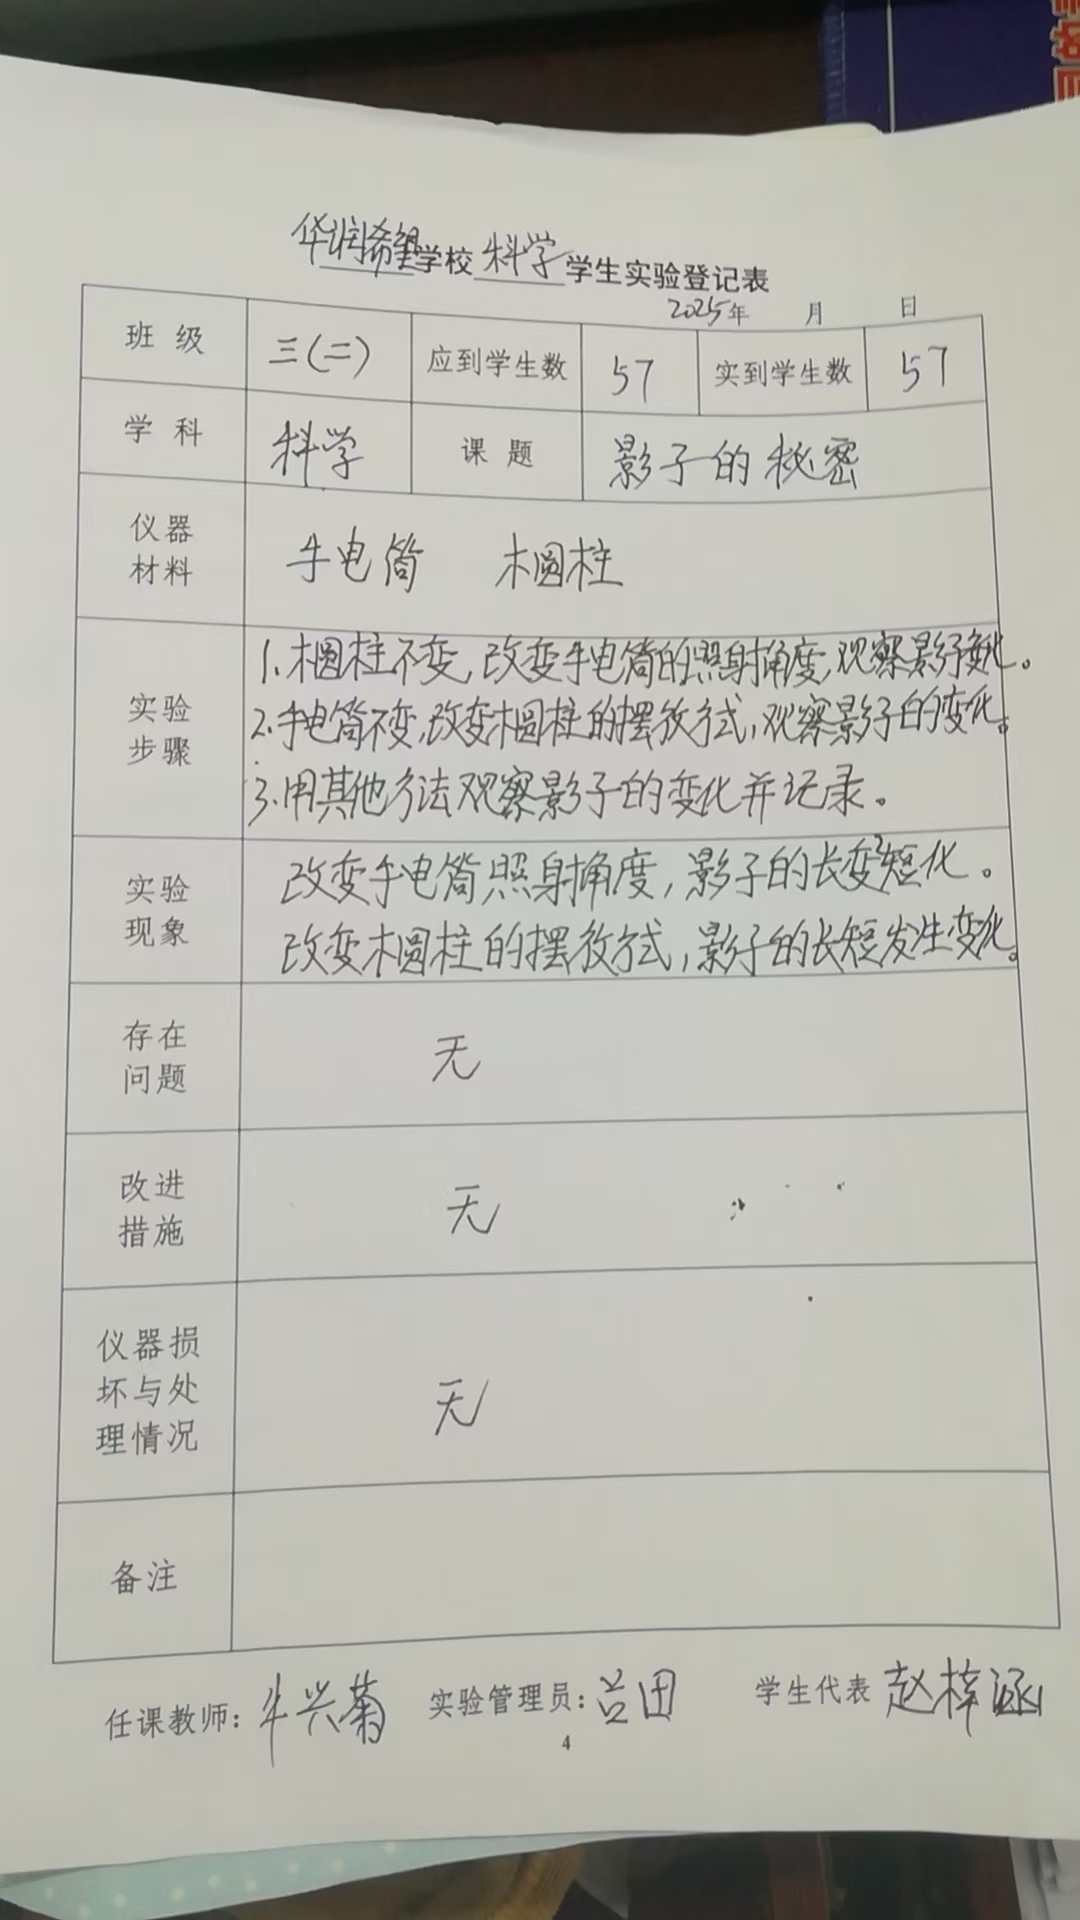 华润希望学校 科学 学生实验登记表
2025年 月 日
班级 三(二) 应到学生数 57 实到学生数 57
学科 科学 课题 影子的秘密
仪器
材料
手电筒 木圆柱
实验
步骤
1.木圆柱不变,改变手电筒的照射角度,观察影子变化。
2.手电筒不变,改变木圆柱的摆放方式,观察影子的变化。
3.用其他方法观察影子的变化并记录。
实验
现象
改变手电筒照射角度,影子的长变短化。
改变木圆柱的摆放方式,影子的长短发生变化。
存在
问题
无
改进
措施
无
仪器损
坏与处
理情况
无
备注
任课教师: 牛兴菊 实验管理员: 吕田 学生代表 赵梓涵
4